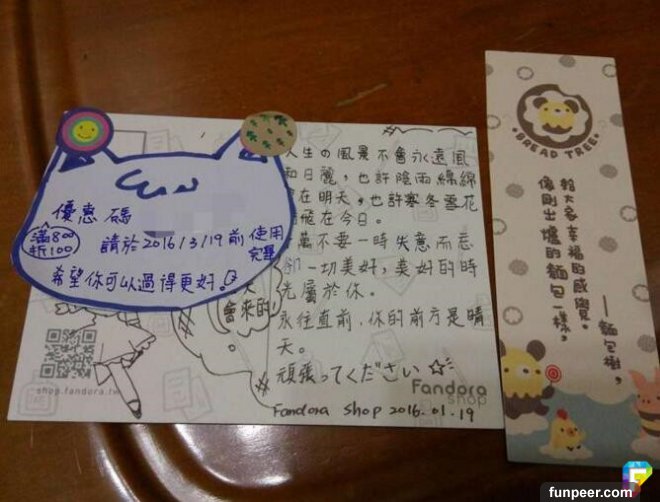 優惠碼
滿800
折100
請於2016/3/19前使用
完畢
希望你可以過得更好!
人生の風景不會永遠風
和日麗,也許陰雨綿綿
在明天,也許寒冬雪花
飛在今日。
萬不要一時失意而忘
卻一切美好,美好的時
光屬於你。
永往直前,你的前方是晴
天。
頑張ってください☆
Fandora Shop 2016.01.19
會來的
shop.fandora.tw
Fandora
shop
BREAD TREE
像剛出爐的麵包一樣,
給大家幸福的感覺。
——麵包樹,
funpeer.com